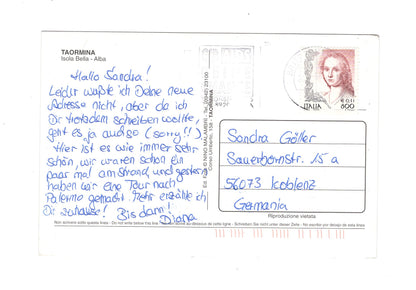 TAORMINA
Isola Bella - Alba
Hallo Sandra!
Leider wußte ich Deine neue
Adresse nicht, aber da ich
Dir trotzdem schreiben wollte,
geht es ja auch so (sorry!!).
Hier ist es wie immer sehr
schön, wir waren schon ein
paar mal am Strand, und gestern
haben wir eine Tour nach
Palermo gemacht. Mehr erzähle ich
Dir zuhause! Bis dann!
Diana
Ed. NINO MALAMBRI - Tel. (0942) 23100
Corso Umberto, 138 - TAORMINA
ITALIA
800
Sandra Göller
Sauerbornstr. 15 a
56073 Koblenz
Germania
Riproduzione vietata
Non scrivere sotto questa linea - Do not write below this line - Ne pas écrire au-dessous de cette ligne - Schreiben Sie nicht unter dieser Zeile - No escribir por debajo de esta línea